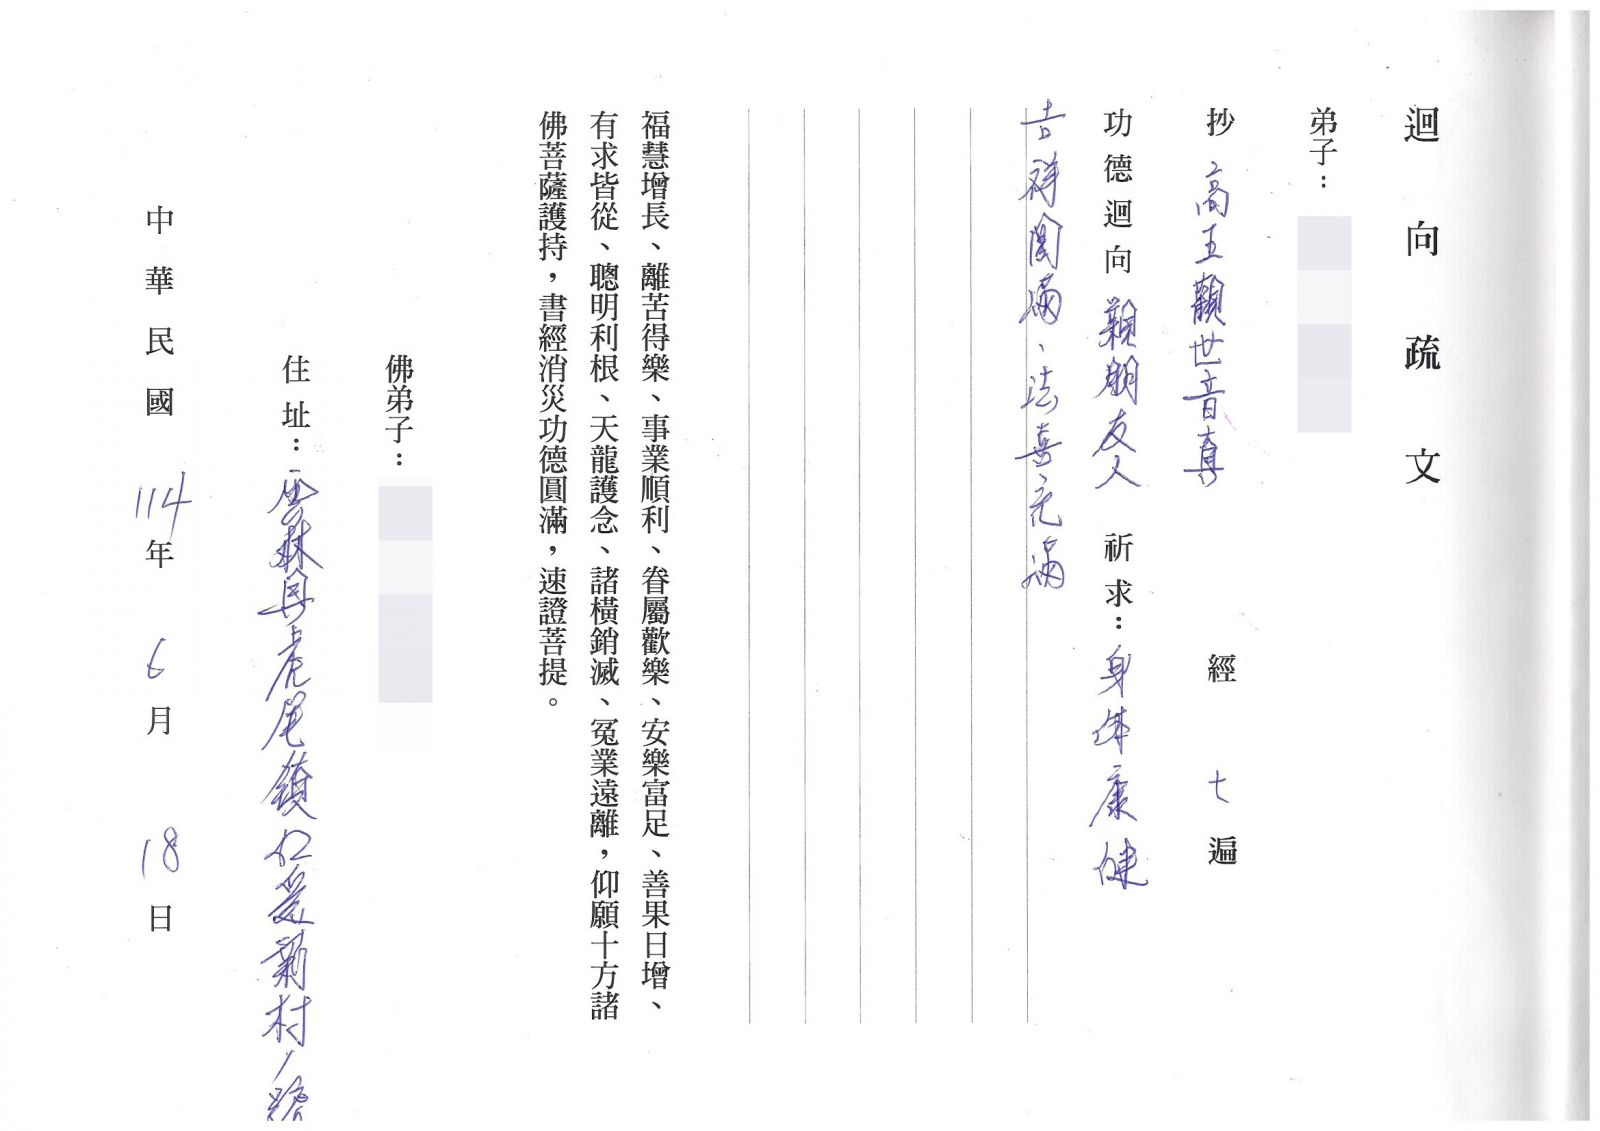 迴向疏文
弟子：
抄 高王觀世音真 經 七 遍
功德迴向 親朋友人 祈求：身体康健
吉祥圓滿、法喜充滿
福慧增長、離苦得樂、事業順利、眷屬歡樂、安樂富足、善果日增、
有求皆從、聰明利根、天龍護念、諸橫銷滅、冤業遠離，仰願十方諸
佛菩薩護持，書經消災功德圓滿，速證菩提。
佛弟子：
住址：雲林縣虎尾鎮仁愛新村1號
中華民國 114 年 6 月 18 日